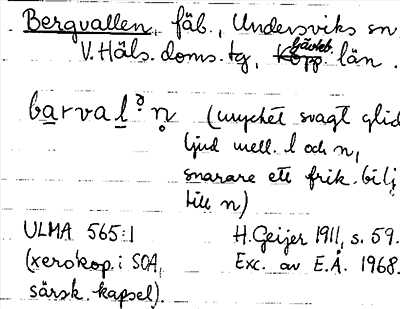 Bergvallen, fäb., Undersviks sn
V. Häls. doms. tg, Gävleb. län.
barval n (mycket svagt glid
ljud mell. l och n,
snarare ett frik. bilj
till n)
ULMA 565:1 H. Geijer 1911, s. 59.
(xerokop. i SOA, Exc. av E.Å. 1968.
särsk. kapsel).